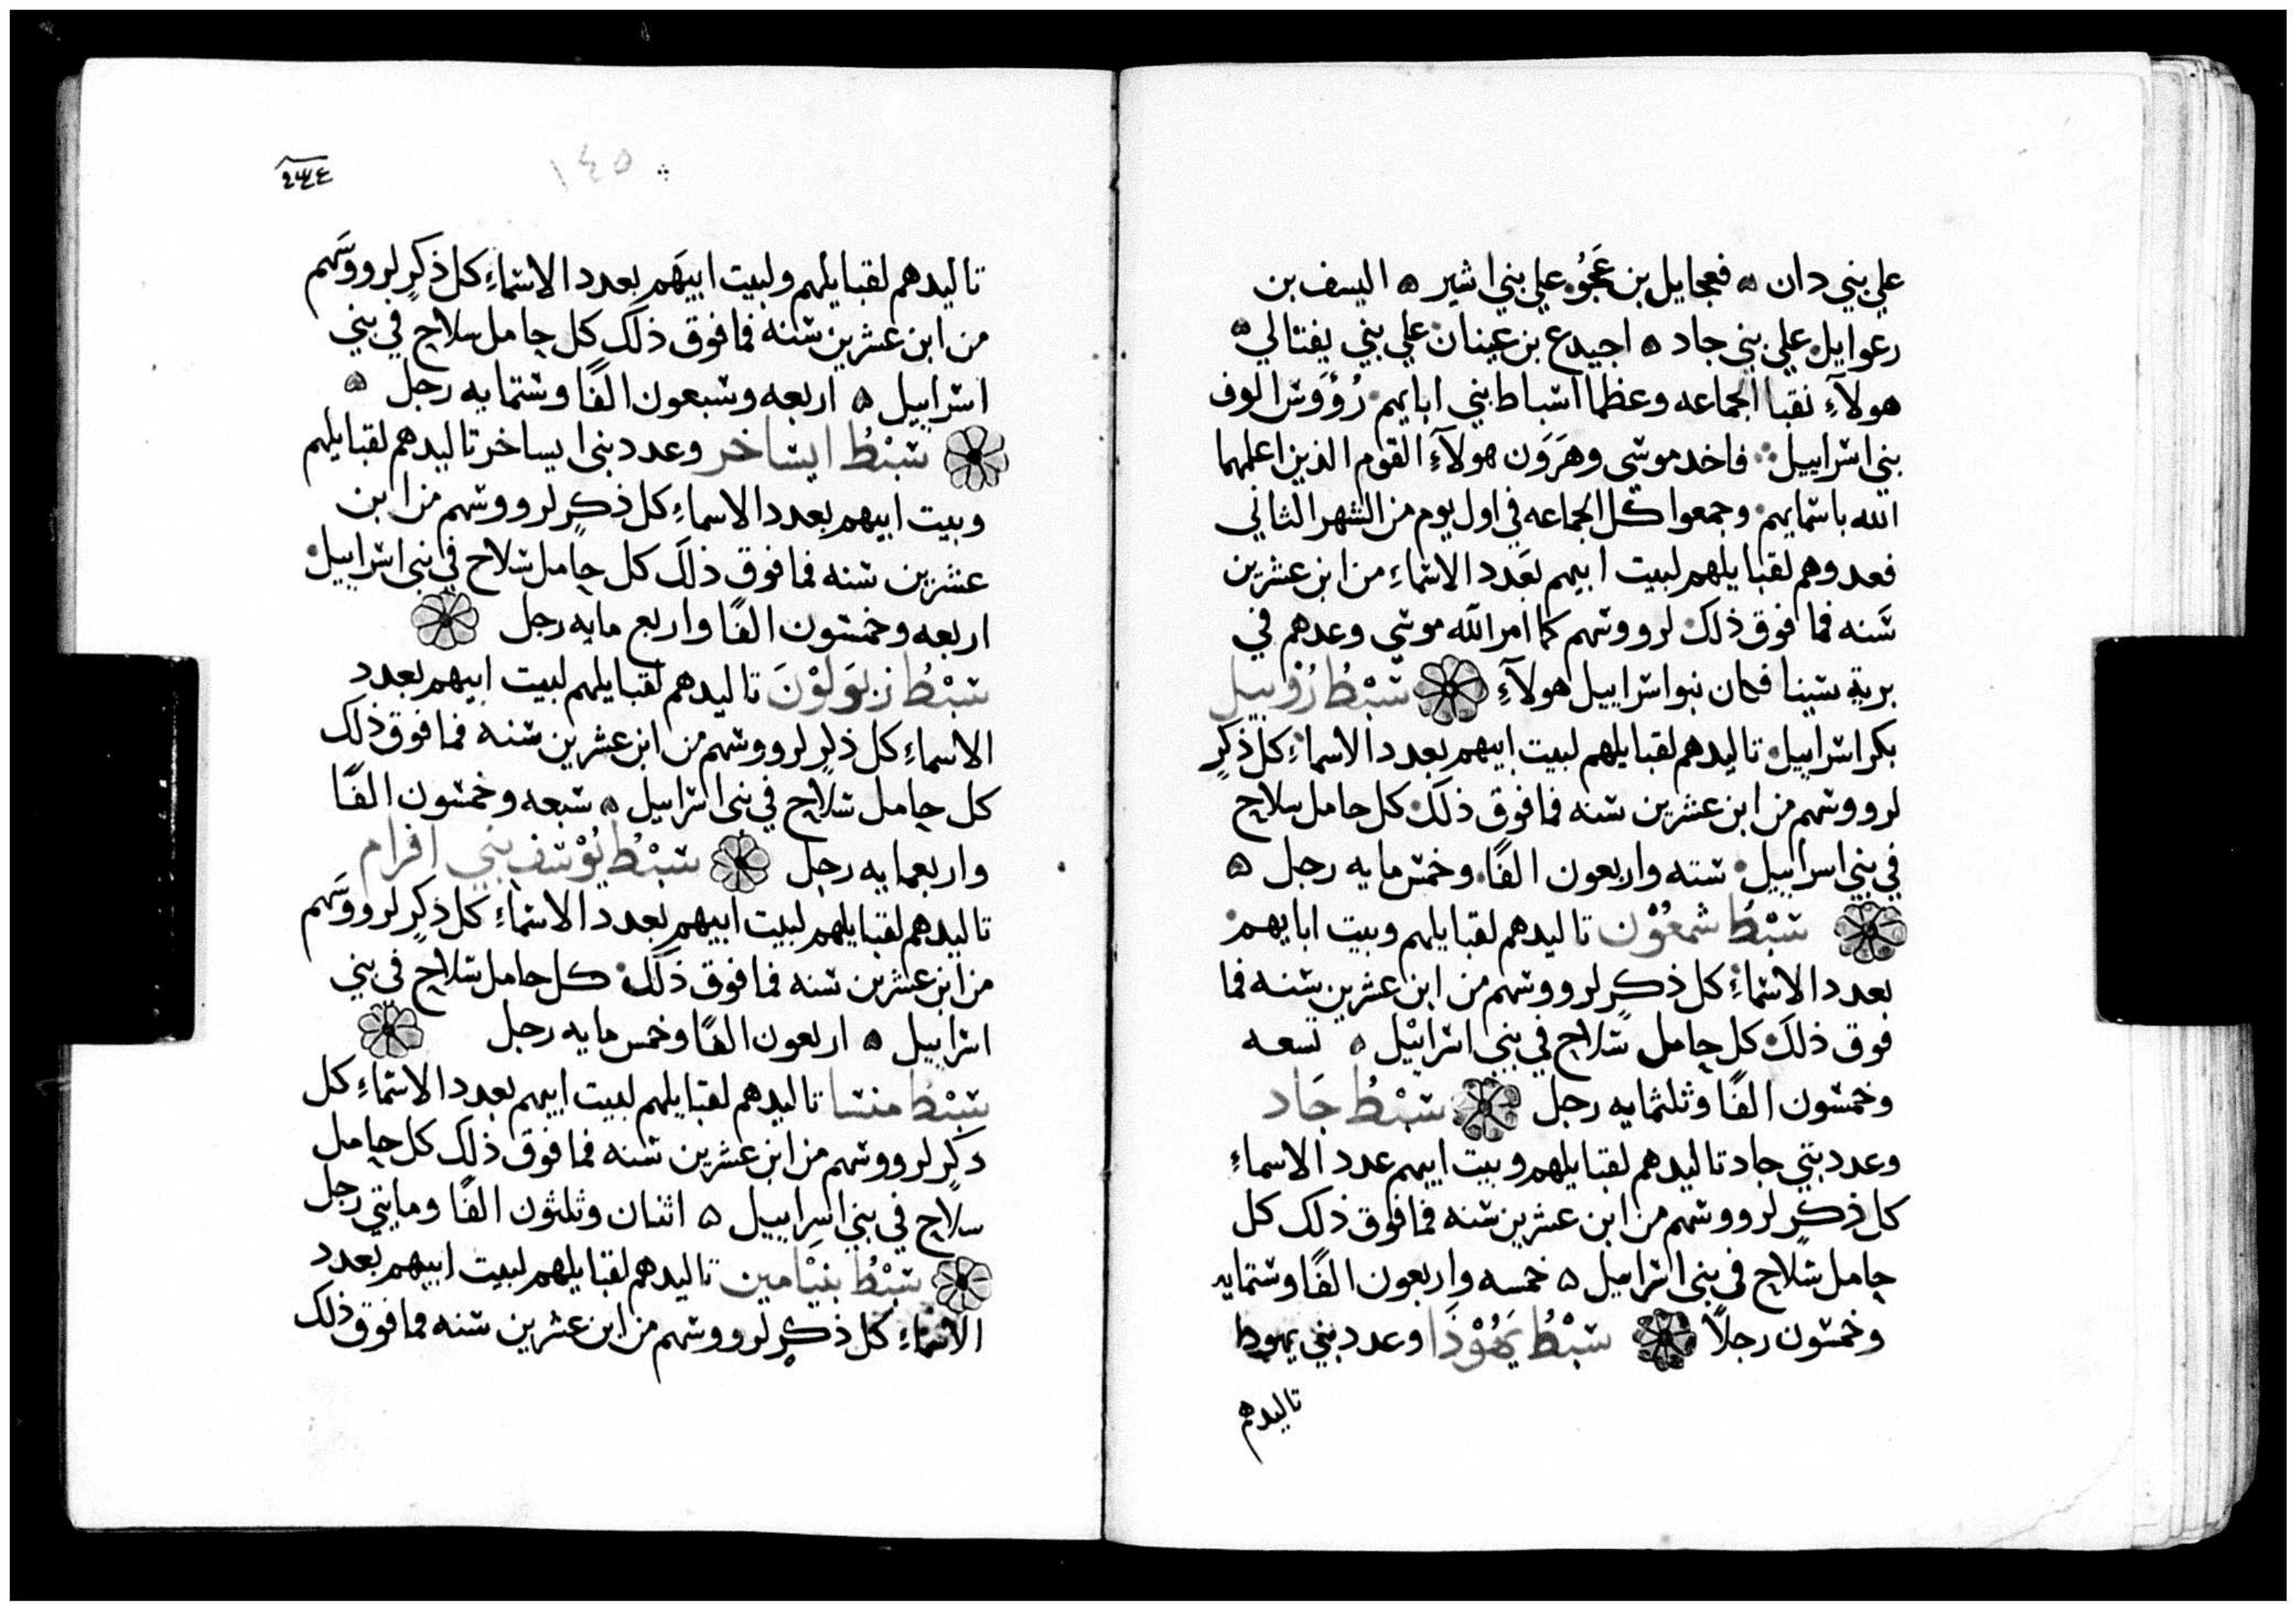 علي بني دان ه فعجايل بن عَجُو علي بني اشير ه اليسف بن
رعوايل علي بني جاد ه اجيدع بن عينان علي بني يفتالي ه
هولآء نقبا الجماعه وعظما اسباط بني ابايهم رُؤوَس الوف
بني اسراييل فاخد موسي وهَرَون هولآءِ القوم الذين اعلمهما
الله باسمايهم وجمعوا كل الجماعه في اول يوم من الشهر الثاني
فعدوهم لقبايلهم لبيت ابيهم بعدد الاسماءِ من ابن عشرين
سنه فما فوق ذلك لرووسهم كما امر الله موسي وعدهم في
برية سينا فكان بنو اسراييل هولآءِ سبْطُ رُوبيل
بكر اسراييل تاليدهم لقبايلهم لبيت ابيهم بعدد الاسماءِ كل ذكرٍ
لرووسهم من ابن عشرين سنه فما فوق ذلك كل حامل سلاح
في بني اسراييل سته واربعون الفًا وخمس مايه رجل ه
سبْطُ شمعُوْن تاليدهم لقبايلهم وبيت ابايهم
بعدد الاسماءِ كل ذكرٍ لرووسهم من ابن عشرين سنه فما
فوق ذلك كل حامل سلاح في بني اسراييل ه تسعه
وخمسون الفًا وثلثمايه رجل سبْطُ جَاد
وعدد بني جاد تاليدهم لقبايلهم وبيت ابيهم عدد الاسماءِ
كل ذكرٍ لرووسهم من ابن عشرين سنه فما فوق ذلك كل
حامل سلاح في بني اسراييل ه خمسه واربعون الفًا وستمايه
وخمسون رجلاً سبْطُ يَهُوْدَا وعدد بني يهودا
تاليدهم
٢٤٤
١٤٥
تاليدهم لقبايلهم ولبيت ابيهَم بعدد الاسماءِ كل ذكرٍ لرووسَهم
من ابن عشرين سنه فما فوق ذلك كل حامل سلاح في بني
اسراييل ه اربعه وسبعون الفًا وستمايه رجل ه
سبْطُ ايساخر وعدد بني ايساخر تاليدهم لقبايلهم
وبيت ابيهم بعدد الاسماءِ كل ذكرٍ لرووسهم من ابن
عشرين سنه فما فوق ذلك كل حامل سلاح في بني اسراييل
اربعه وخمسون الفًا واربع مايه رجل
سبْطُ زبوَلوْنَ تاليدهم لقبايلهم لبيت ابيهم بعدد
الاسماءِ كل ذكرٍ لرووسهم من ابن عشرين سنه فما فوق ذلك
كل حامل سلاح في بني اسراييل ه سبعه وخمسون الفًا
واربعمايه رجل سبْطُ يُوْسَف بني افرام
تاليدهم لقبايلهم لبيت ابيهم بعدد الاسماءِ كل ذكرٍ لرووسَهم
من ابن عشرين سنه فما فوق ذلك كل حامل سلاح في بني
اسراييل ه اربعون الفًا وخمس مايه رجل
سبْطُ منسا تاليدهم لقبايلهم لبيت ابيهم بعدد الاسماءِ كل
دكرٍ لرووسهم من ابن عشرين سنه فما فوق ذلك كل حامل
سلاح في بني اسراييل ه اثنان وثلثون الفًا ومايتي رجل
سبْطُ بنيَامين تاليدهم لقبايلهم لبيت ابيهم بعدد
الاسماءِ كل ذكرٍ لرووسهم من ابن عشرين سنه فما فوق ذلك